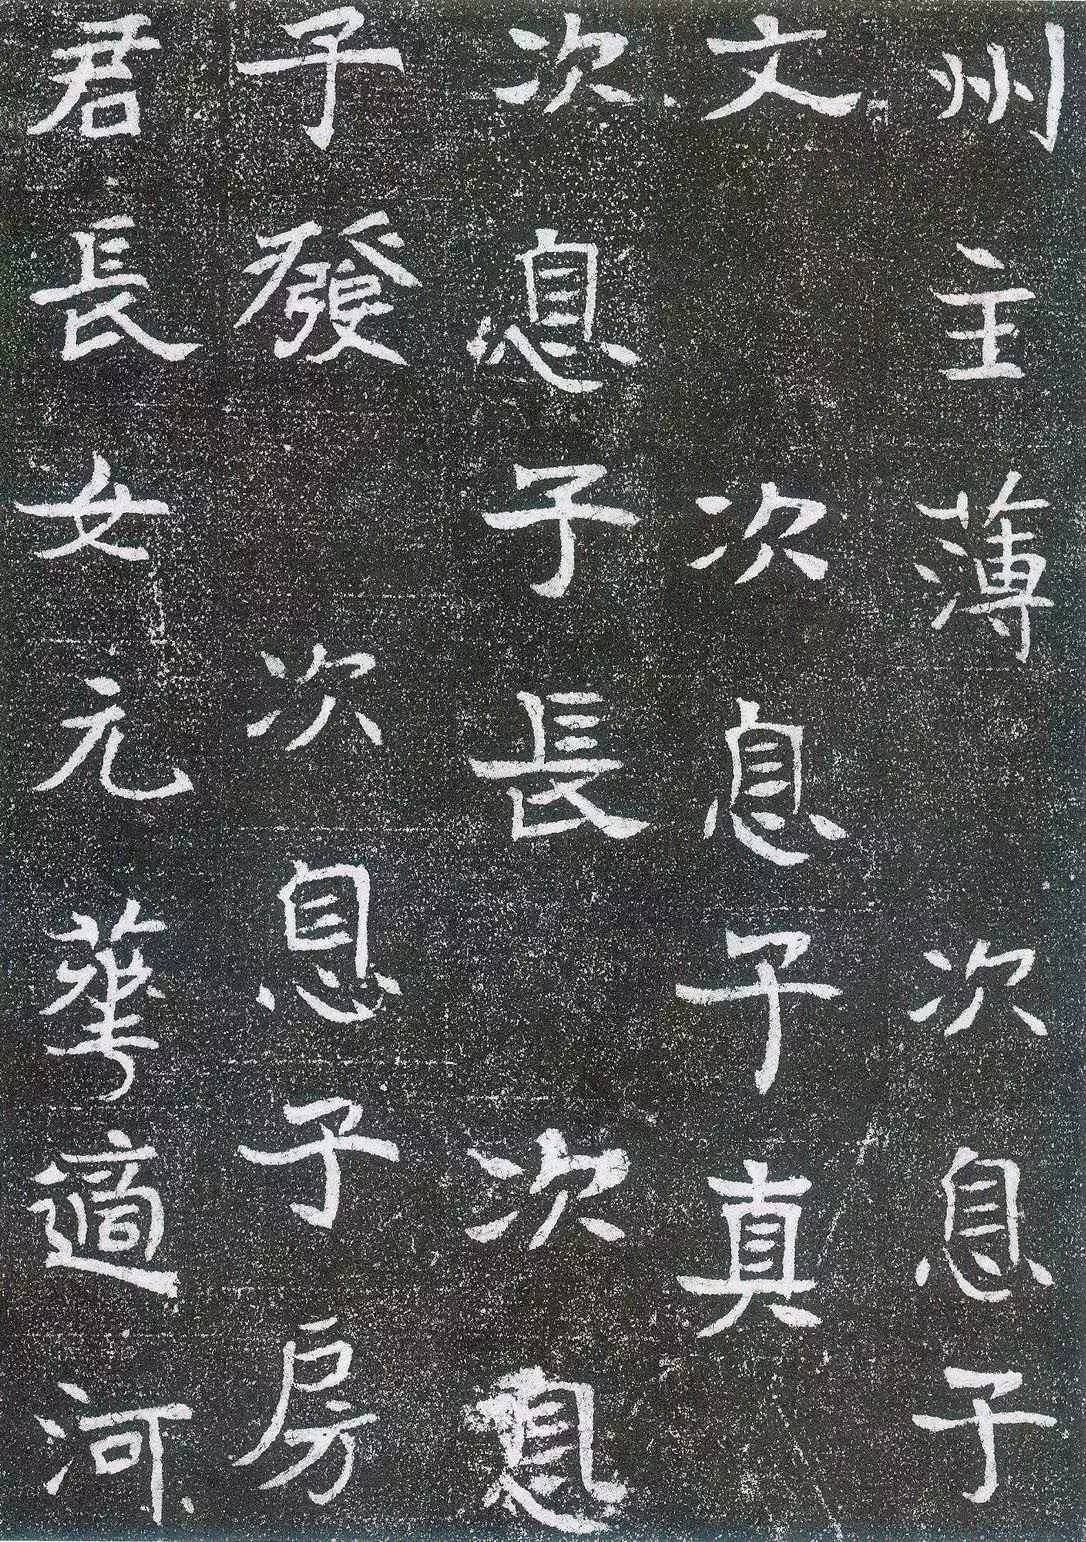 州主薄次息子
文次息子真
次息子長次息
子發次息子房
君長女元華適河